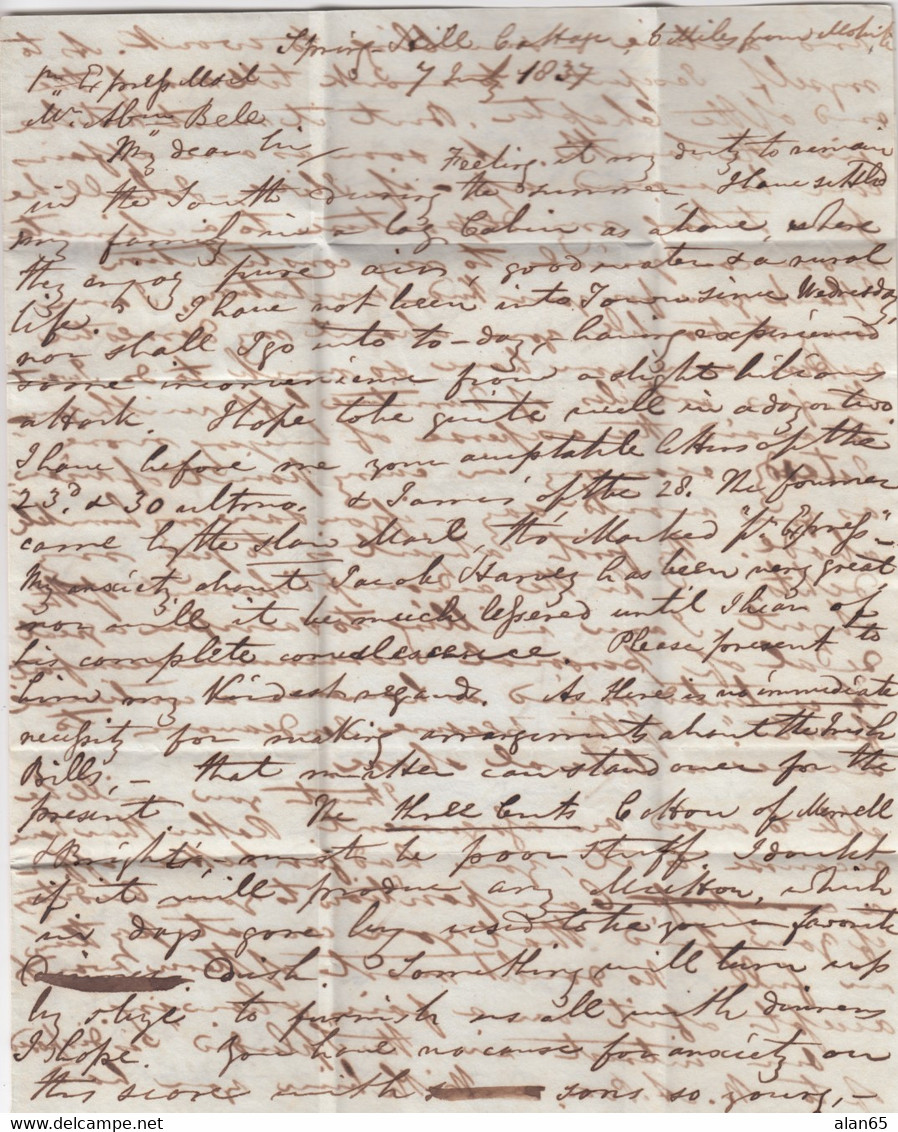 Spring Hill Cottage, 6 Miles from Mobile
7 July 1837
pr Express Mail
Mr. Abm Bell
My dear Sir
Feeling it my duty to remain
in the South during the summer I have settled
my family in a log Cabin as above, where
they enjoy pure air, good water & a rural
life. I have not been into Town since Wednesday,
nor shall I go into to-day, having experienced
some inconvenience from a slight bilious
attack. I hope to be quite well in a day or two
I have before me your acceptable letters of the
23d. & 30 ultmo. & James' of the 28. The former
came by the slow Mail, tho' Marked "pr Express"-
My anxiety about Jacob Harvey has been very great
nor will it be much lessened until I hear of
his complete convalescence. Please present to
him my Kindest regards. As there is no immediate
necessity for making arrangements about the Irish
Bills, - that matter can stand over for the
present The three Cents Cotton of Merrell
& Bright's, must be poor stuff, I doubt
if it will produce any Mutton, which
in days gone by used to be your favorite
dish. Something will turn up
by & bye to furnish us all with dinners
I hope. You have no cause for anxiety on
this score with sons so young, -
alan65